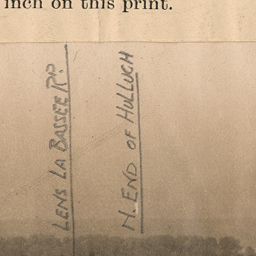 inch on this print.
LENS LA BASSEE RD.
N. END OF HULLUCH